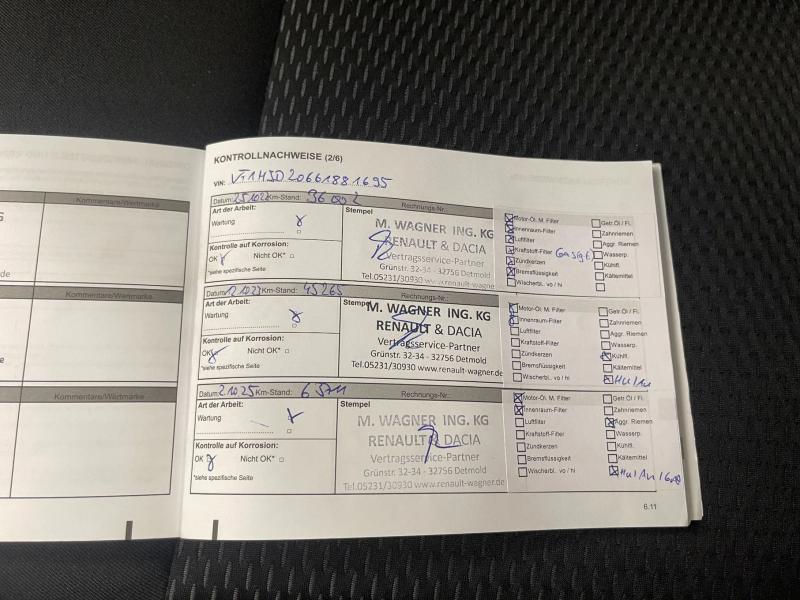 Kommentare/Wertmarke
Kommentare/Wertmarke
Kommentare/Wertmarke
de
KONTROLLNACHWEISE (2/6)
VIN:
Datum: Km-Stand: Rechnungs-Nr.:
Art der Arbeit:
Wartung
Kontrolle auf Korrosion:
OK Nicht OK*
*siehe spezifische Seite
Stempel
M. WAGNER ING. KG
RENAULT & DACIA
Vertragsservice-Partner
Grünstr. 32-34 - 32756 Detmold
Tel.05231/30930 www.renault-wagner
Motor-Öl. M. Filter
Innenraum-Filter
Luftfilter
Kraftstoff-Filter
Zündkerzen
Bremsflüssigkeit
Wischerbl. vo / hi
Getr.Öl / Fl.
Zahnriemen
Aggr. Riemen
Wasserp.
Kühlfl.
Kältemittel
Datum: Km-Stand: 45265 Rechnungs-Nr.:
Art der Arbeit:
Wartung
Kontrolle auf Korrosion:
OK Nicht OK*
*siehe spezifische Seite
Stempel
M. WAGNER ING. KG
RENAULT & DACIA
Vertragsservice-Partner
Grünstr. 32-34 - 32756 Detmold
Tel.05231/30930 www.renault-wagner.de
Motor-Öl. M. Filter
Innenraum-Filter
Luftfilter
Kraftstoff-Filter
Zündkerzen
Bremsflüssigkeit
Wischerbl. vo / hi
Getr.Öl / Fl.
Zahnriemen
Aggr. Riemen
Wasserp.
Kühlfl.
Kältemittel
Datum: Km-Stand: Rechnungs-Nr.:
Art der Arbeit:
Wartung
Kontrolle auf Korrosion:
OK Nicht OK*
*siehe spezifische Seite
Stempel
M. WAGNER ING. KG
RENAULT & DACIA
Vertragsservice-Partner
Grünstr. 32-34 - 32756 Detmold
Tel.05231/30930 www.renault-wagner.de
Motor-Öl. M. Filter
Innenraum-Filter
Luftfilter
Kraftstoff-Filter
Zündkerzen
Bremsflüssigkeit
Wischerbl. vo / hi
Getr.Öl / Fl.
Zahnriemen
Aggr. Riemen
Wasserp.
Kühlfl.
Kältemittel
6.11